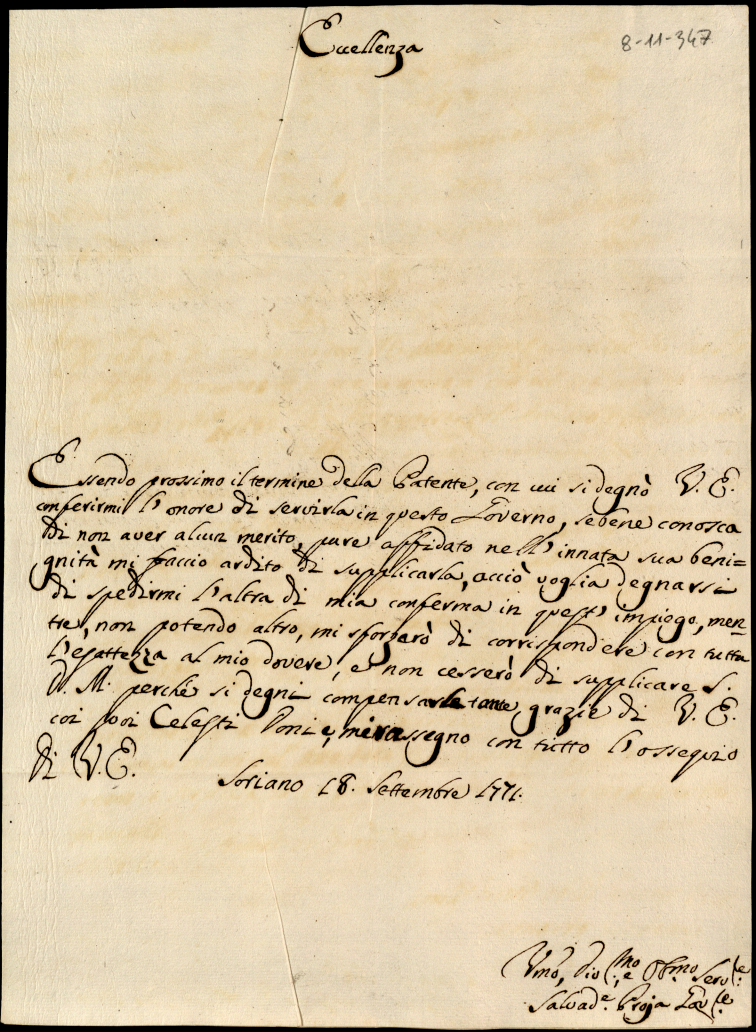 Eccellenza
8-11-347
Essendo prossimo il termine della Patente, con cui si degnò V. E.
conferirmi l'onore di servirla in questo Governo, sebene conosca
di non aver alcun merito, pure affidato nell'innata sua beni=
gnità mi faccio ardito di supplicarla, acciò voglia degnarsi
di spedirmi l'altra di mia conferma in quest'impiego, men
tre, non potendo altro, mi sforzarò di corrispondere con tutta
l'esattezza al mio dovere, e non cesserò di supplicare S.
D. M. perchè si degni compensarle tante grazie di V. E.
coi suoi Celesti Doni e, mi rassegno con tutto l'ossequio
di V. E.
Soriano 18. Settembre 1771.
Vmo, Dio(mo:, e Obmo Serv(e:
Salvad.e Proja Gov(e: